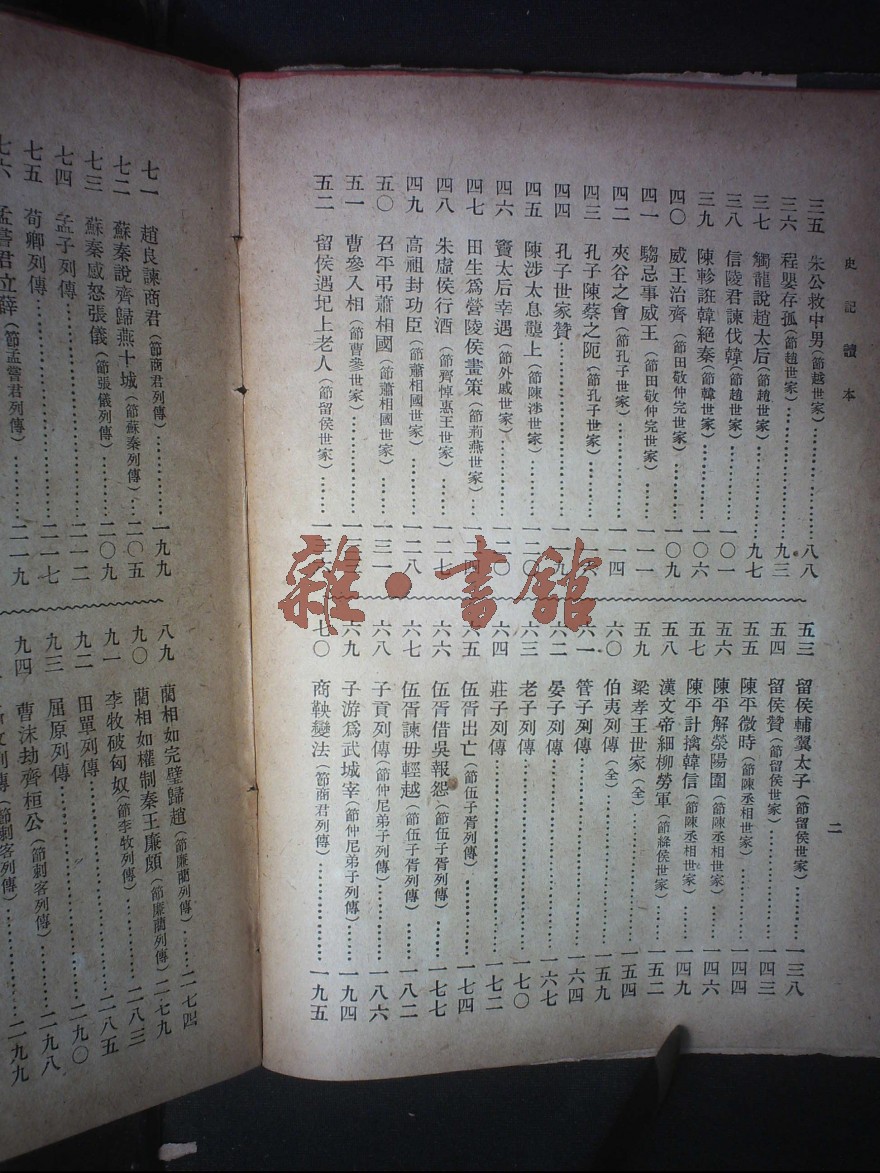 史記讀本
三五 朱公救中男(節越世家)………八八
三六 程嬰存孤(節趙世家)………九三
三七 觸龍說趙太后(節趙世家)………九七
三八 信陵君諫伐韓(節趙世家)………一〇一
三九 陳軫誑韓絕秦(節韓世家)………一〇六
四〇 威王治齊(節田敬仲完世家)………一〇九
四一 騶忌事威王(節田敬仲完世家)………一一一
四二 夾谷之會(節孔子世家)………一一四
四三 孔子陳蔡之阨(節孔子世家)………
四四 孔子世家贊………
四五 陳涉太息壟上(節陳涉世家)………一二〇
四六 竇太后幸遇(節外戚世家)………
四七 田生爲營陵侯畫策(節荊燕世家)…
四八 朱虛侯行酒(節齊悼惠王世家)………一二七
四九 高祖封功臣(節蕭相國世家)………一二八
五〇 召平弔蕭相國(節蕭相國世家)………一三一
五一 曹參入相(節曹參世家)………
五二 留侯遇圯上老人(節留侯世家)………
五三 留侯輔翼太子(節留侯世家)………一三八
五四 留侯贊(節留侯世家)………一四三
五五 陳平微時(節陳丞相世家)………一四四
五六 陳平解滎陽圍(節陳丞相世家)………一四六
五七 陳平計擒韓信(節陳丞相世家)………一四九
五八 漢文帝細柳勞軍(節絳侯世家)………一五二
五九 梁孝王世家(全)………一五四
六〇 伯夷列傳(全)………一五九
六一 管子列傳………一六四
六二 晏子列傳………一六七
六三 老子列傳………一七〇
六四 莊子列傳………一七二
六五 伍胥出亡(節伍子胥列傳)………一七四
六六 伍胥借吳報怨(節伍子胥列傳)………一七七
六七 伍胥諫毋輕越(節伍子胥列傳)………一八二
六八 子貢列傳(節仲尼弟子列傳)………一八六
六九 子游爲武城宰(節仲尼弟子列傳)………一九四
七〇 商鞅變法(節商君列傳)………一九五
二
七一 趙良諫商君(節商君列傳)………一九九
七二 蘇秦說齊歸燕十城(節蘇秦列傳)…二〇五
七三 蘇秦感怒張儀(節張儀列傳)………二〇九
七四 孟子列傳………二一二
七五 荀卿列傳………二一七
七六 孟嘗君立薛(節孟嘗君列傳)………二一九
八九 藺相如完璧歸趙(節廉藺列傳)………二七四
九〇 藺相如權制秦王廉頗(節廉藺列傳)…二七九
九一 李牧破匈奴(節李牧列傳)………二八三
九二 田單列傳………二八五
九三 屈原列傳………二九〇
九四 曹沫劫齊桓公(節刺客列傳)………二九八
列傳(節刺客列傳)………二九九
雜·書館